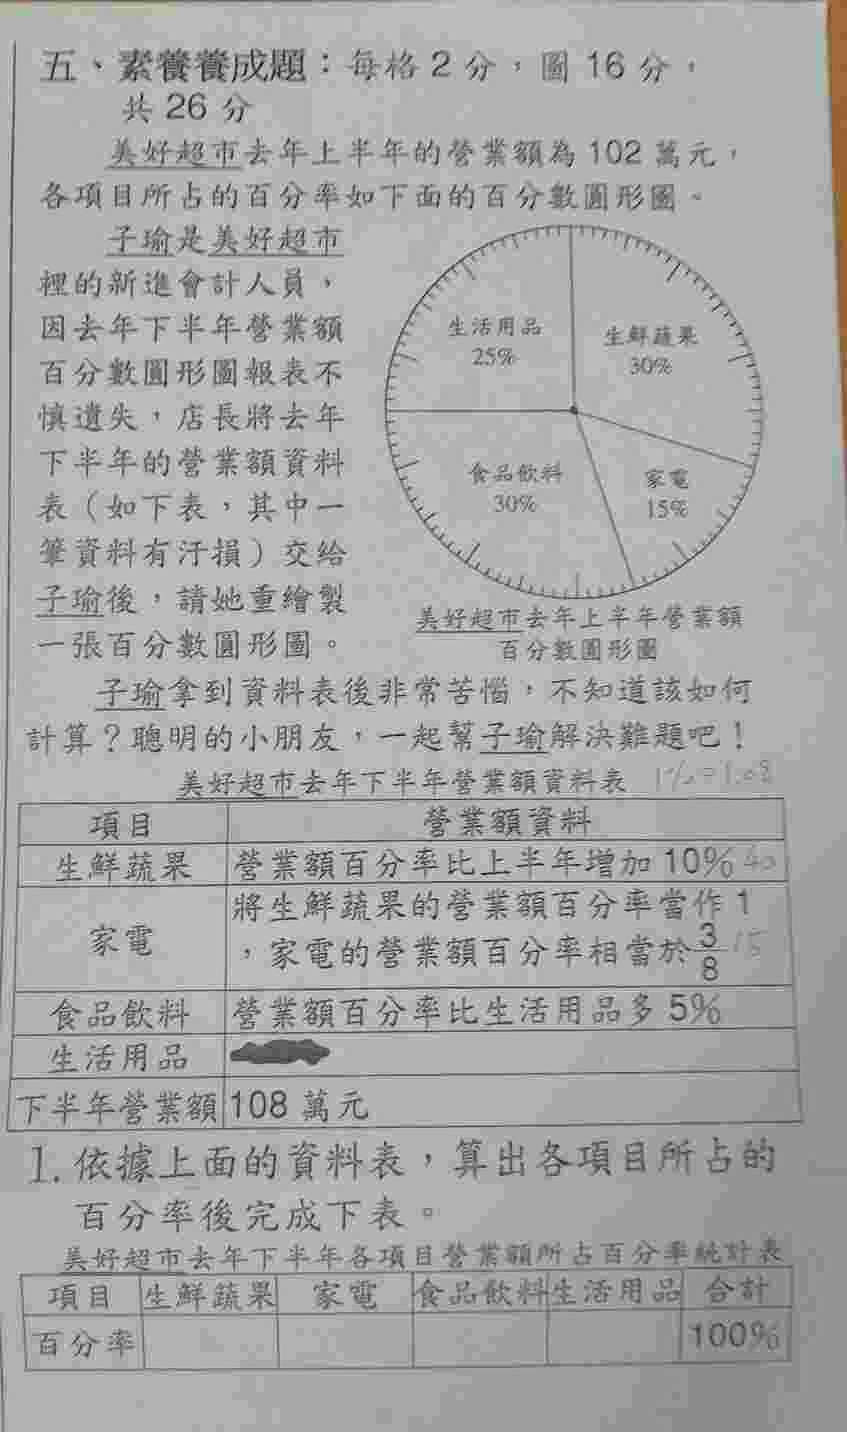 五、素養養成題：每格 2 分，圖 16 分，
共 26 分
美好超市去年上半年的營業額為 102 萬元，
各項目所占的百分率如下面的百分數圓形圖。
子瑜是美好超市
裡的新進會計人員，
因去年下半年營業額
百分數圓形圖報表不
慎遺失，店長將去年
下半年的營業額資料
表（如下表，其中一
筆資料有汙損）交給
子瑜後，請她重繪製
一張百分數圓形圖。
生活用品
25%
生鮮蔬果
30%
食品飲料
30%
家電
15%
美好超市去年上半年營業額
百分數圓形圖
子瑜拿到資料表後非常苦惱，不知道該如何
計算？聰明的小朋友，一起幫子瑜解決難題吧！
美好超市去年下半年營業額資料表 1%=1.08
項目 營業額資料
生鮮蔬果 營業額百分率比上半年增加 10% 40
家電 將生鮮蔬果的營業額百分率當作 1
，家電的營業額百分率相當於 3/8 15
食品飲料 營業額百分率比生活用品多 5%
生活用品
下半年營業額 108 萬元
1. 依據上面的資料表，算出各項目所占的
百分率後完成下表。
美好超市去年下半年各項目營業額所占百分率統計表
項目 生鮮蔬果 家電 食品飲料 生活用品 合計
百分率 100%